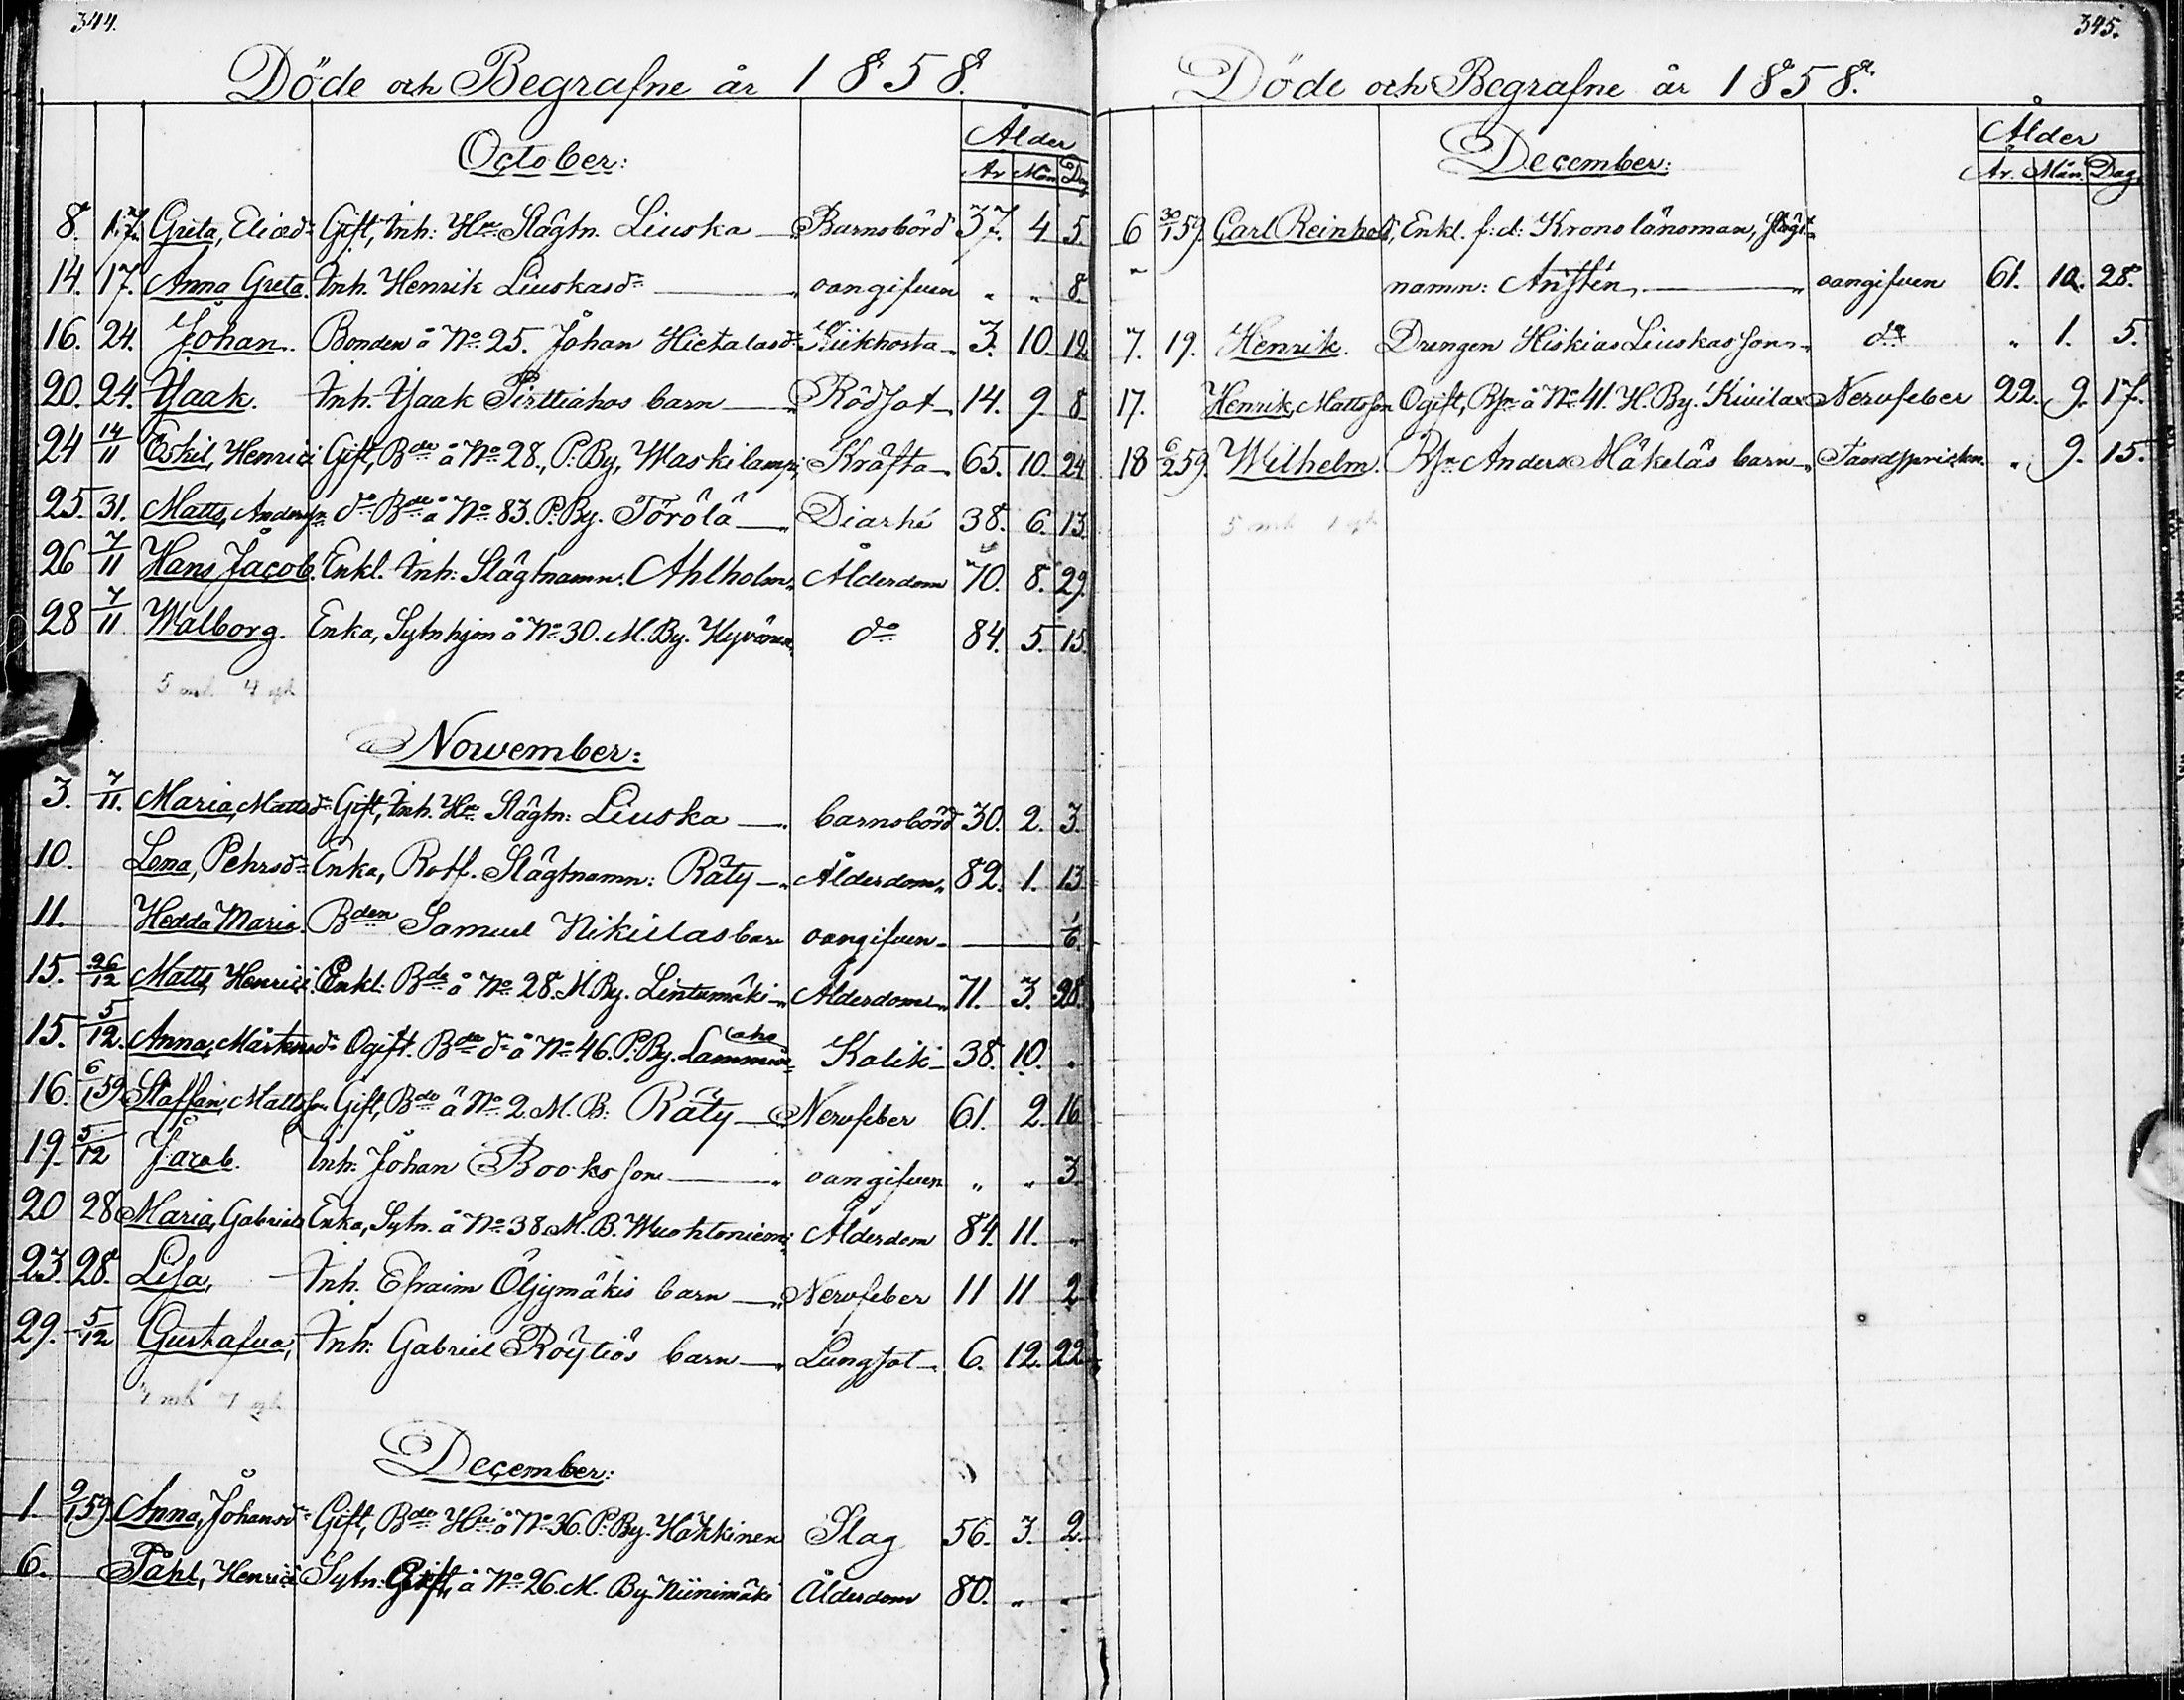 344.
Döde och Begrafne år 1858.
October:
Ålder
År Mån Dag
8. 17. Greta, Eliæd:r Gift, Inh: H:u Slägtn. Liuska — Barnsbörd 37. 4 5.
14. 17. Anna Greta. Inh. Henrik Liuskas d:r — oangifven „ „ 8.
16. 24. Johan. Bonden å N:o 25. Johan Hietalas d:o Kikhosta 3. 10. 12.
20. 24. Isaak. Inh. Isaak Pirttiahos barn — Rödsot 14. 9 8
24 14/11 Eskil, Henrici Gift, B:de å N:o 28., P. By, Waskilampi, Kräfta 65. 10. 24
25. 31. Matts, Anderss:n d:o B:de å N:o 83. P. By. Törölä — Diarhé 38. 6. 13
26 7/11 Hans Jacob. Enkl. Inh: Slägtnamn: Ahlholm. Ålderdom 70. 8. 29.
28 7/11 Walborg. Enka, Sytnhjon å N:o 30. M. By. Hyvönen d:o 84. 5. 15.
5 mk 4 qk
Nowember:
3. 7/11. Maria, Mattsd:r Gift, Inh. H:u Slägtn: Liuska — barnsbörd 30. 2. 3.
10. Lena, Pehrsd:r Enka, Rotf. Slägtnamn: Räty — Ålderdom 82. 1. 13
11. Hedda Maria. B:den Samuel Nikulas barn oangifven — 1/6.
15. 26/12 Matts, Henrici. Enkl: B:de å N:o 28. M By. Lintumäki — Ålderdom 71. 3. 28.
15. 5/12. Anna, Mårtensd:r Ogift. B:de d:r å N:o 46. P. By. Lamminaho Kolik 38. 10. „
16. 6/1 59. Staffan, Mattsson Gift, B:de å N:o 2. M. B: Räty — Nervfeber 61. 2. 16
19. 5/12 Jacob. Inh. Johan Books son — oangifven „ „ 3.
20 28 Maria, Gabrielsd Enka, Sytn. å N:o 38. M. B. Wuohtoniemi Ålderdom 84. 11. „
23. 28. Lisa, Inh. Efraim Öljymäkis barn — Nervfeber 11 11 2
29. 5/12 Gustafva, Inh: Gabriel Röytiös barn — Lungsot 6. 12. 22
December:
1. 9/1 59. Anna, Johansd:r Gift, B:de H:u å N:o 36. P. By. Häkkinen Slag 56. 3. 2.
6. Påhl, Henrici Sytn: Gift, å N:o 26. M. By Niinimäki Ålderdom 80. „ „
345.
Döde och Begrafne år 1858.
December:
Ålder
År. Mån. Dag.
6 30/1 59. Carl Reinhold, Enkl. f: d: Kronolänsman, slägt-
„ namn: Anstén, — oangifven 61. 10. 28.
7. 19. Henrik. Drengen Hiskias Liuskas son d:o „ 1. 5.
17. Henrik, Mattsson Ogift, Bs:n å N:o 41. H. By. Kivilax Nervfeber 22. 9. 17.
18 6/2 59. Wilhelm. Bs:n Anders Mäkeläs barn Tandsprickn. „ 9. 15.
5 mk 1 qk